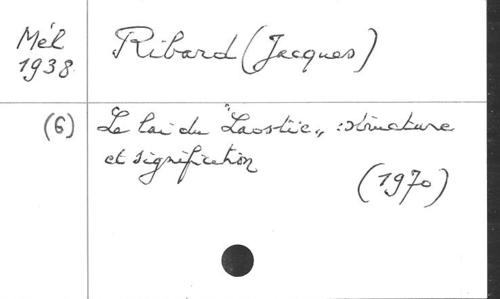 Mél
1938
Ribard (Jacques)
(6)
Le lai du "Laostic" : structure
et signification
(1970)